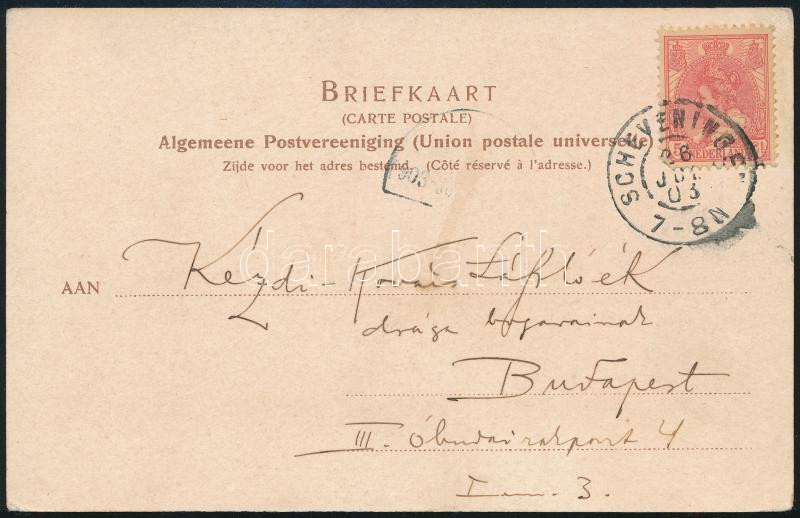 BRIEFKAART
(CARTE POSTALE)
Algemeene Postvereeniging (Union postale universelle)
Zijde voor het adres bestemd. (Côté réservé à l'adresse.)
NEDERLAND
SCHEVENINGEN
26
JUL
03
7-8N
903
darabanth
AAN Kézdi-Kovács Lászlóék
drága bogarainak
Budapest
III. Óbudai rakpart 4
I em. 3.